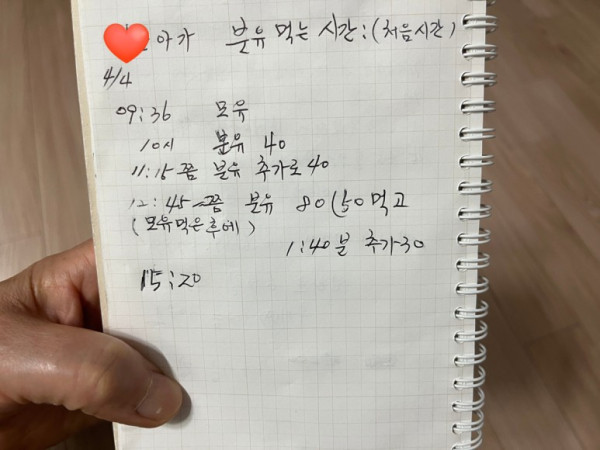 아가 분유 먹는 시간: (처음시간)
4/4
09:36 모유
10시 분유 40
11:15쯤 분유 추가로 40
12:45~쯤 분유 80 (50먹고
(모유먹은후에)
1:40분 추가30
15:20